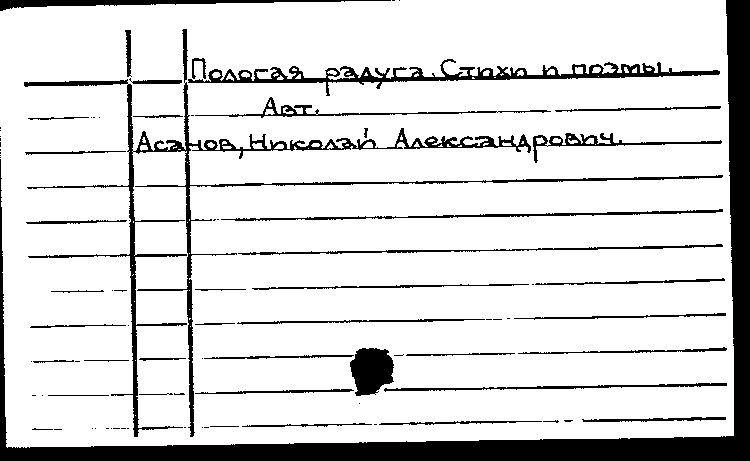 Пологая радуга. Стихи и поэмы.
Авт.
Асанов, Николай Александрович.